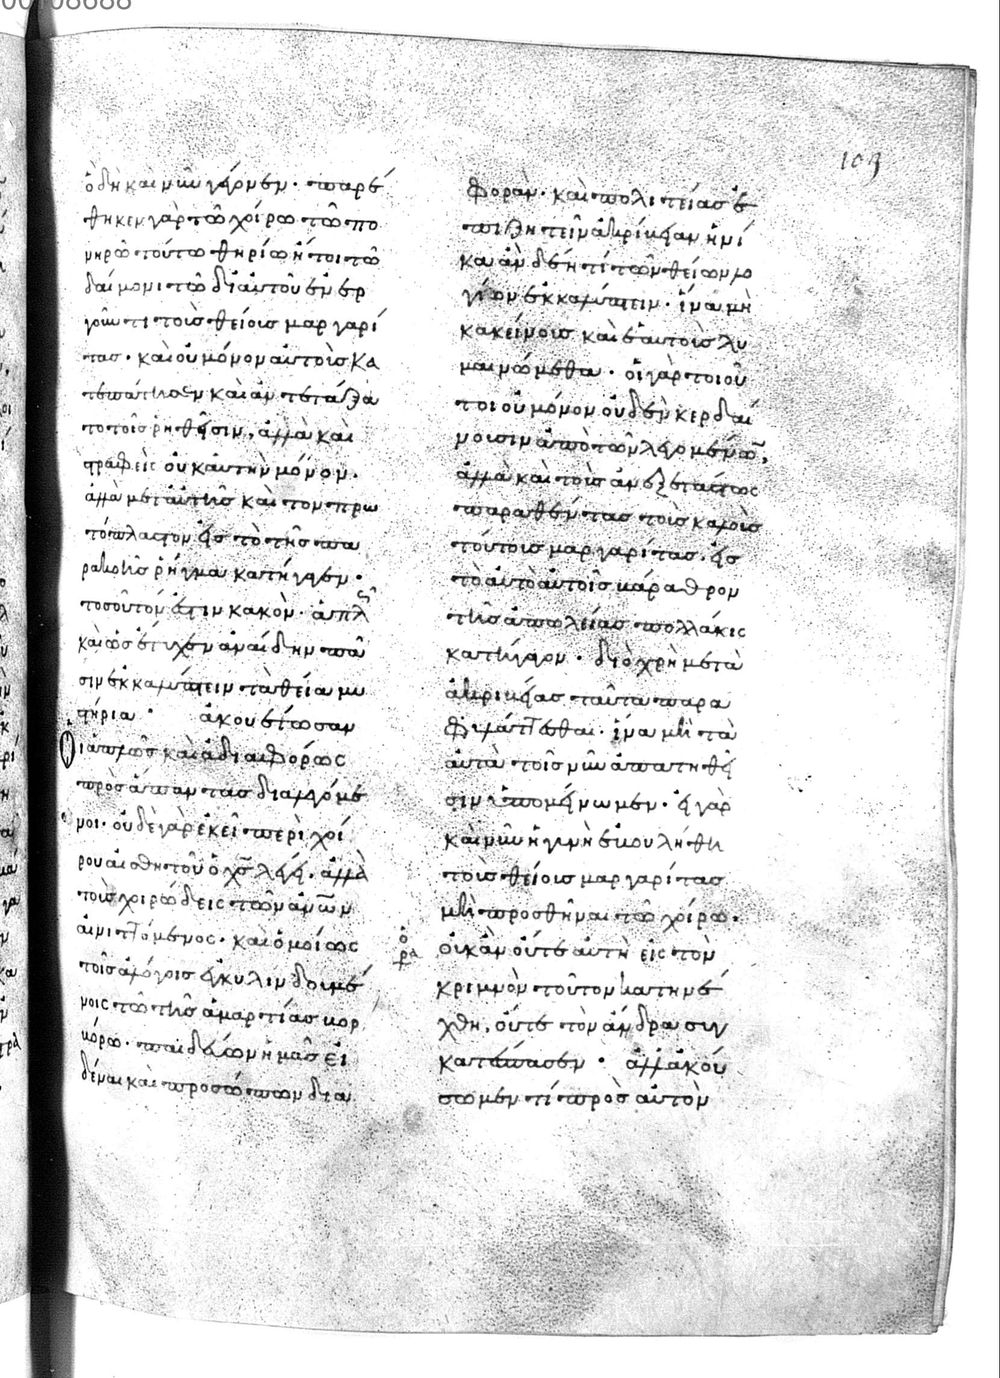 109
ὃ δὴ καὶ νῦν γέγονεν· παρέ
θηκεν γὰρ τῶ χοίρω τῶ πο
νηρῶ τούτω θηρίω ἤτοι τῶ
δαίμονι τῶ δι' αὐτοῦ ἐνερ
γοῦντι τοῖς θείοις μαργαρί
τας· καὶ οὐ μόνον αὐτοὺς κα
τεπάτησεν καὶ ἀντετάξα
το τοῖς ῥηθεῖσιν, ἀλλὰ καὶ
στραφεὶς οὐκ αὐτὴν μόνον·
ἀλλὰ μετ' αὐτῆς καὶ τὸν πρω
τόπλαστον εἰς τὸ τῆς πα
ρακοῆς ῥῆγμα κατήγαγεν·
τοσοῦτόν ἐστιν κακὸν· ἁπλῶς
καὶ ὡς ἔτυχεν ἀναίδην πᾶ
σιν ἐκκαλύπτειν τὰ θεῖα μυ
στήρια· ἀκουέτωσαν
οἱ ἁπλῶς καὶ ἀδιαφόρως
πρὸς ἅπαντας διαλεγόμε
νοι· οὐδὲ γὰρ ἐκεῖ περὶ χοί
ρου αἰσθητοῦ ὁ χς λέγει· ἀλλὰ
τοὺς χοιρώδεις τῶν ἀνων
αἰνιττόμενος· καὶ ὁμοίως
τοῖς ἀλόγοις ἐγκυλινδουμέ
νοις τῶ τῆς ἁμαρτίας βορ
βόρω· παιδεύων ἡμᾶς εἰ
δέναι καὶ προσώπων δια
φορὰν· καὶ πολιτείας ἐ
πιζητεῖν ἀκρίβειαν ἡνί
κα ἂν δέη τι τῶν θείων λο
γίων ἐκκαλύπτειν· ἵνα μὴ
κακείνοις καὶ ἑαυτοῖς λυ
μαινώμεθα· οἱ γὰρ τοιοῦ
τοι οὐ μόνον οὐδὲν κερδαί
νουσιν ἀπὸ τῶν λεγομένων,
ἀλλὰ καὶ τοὺς ἀνεξετάστως
παραθέντας τοὺς καλοὺς
τούτους μαργαρίτας· εἰς
τὸ αὐτὸ αὐτοῖς βάραθρον
τῆς ἀπωλείας πολλάκις
κατήγαγον· διὸ χρὴ μετὰ
ἀκριβείας ταῦτα παρα
φυλάττεσθαι· ἵνα μὴ τὰ
αὐτὰ τοῖς νῦν ἀπατηθεῖ
σιν ὑπομείνωμεν· εἰ γὰρ
καὶ νῦν ἡ γυνὴ ἐβουλήθη
τοὺς θείους μαργαρίτας
μὴ προσθῆναι τῶ χοίρω·
ὅρα
οὐκ ἂν οὔτε αὐτὴ εἰς τὸν
κρημνὸν τοῦτον κατηνέ
χθη, οὔτε τὸν ἄνδρα συγ
κατέσπασεν· ἀλλ' ἀκού
σωμεν τί πρὸς αὐτὸν